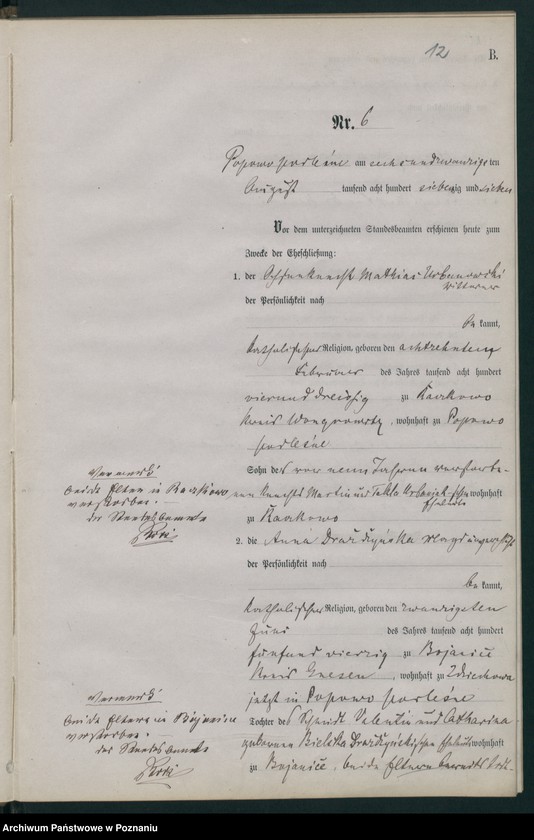 12
B.
Nr. 6
Popowo podleśne am sechsundzwanzigsten
August tausend acht hundert siebenzig und sieben
Vor dem unterzeichneten Standesbeamten erschienen heute zum
Zwecke der Eheschließung:
1. der Ochsenknecht Mathias Urbanowski
Wittwer
der Persönlichkeit nach
be kannt,
katholischer Religion, geboren den achtzehnten
Februar des Jahres tausend acht hundert
vierund dreißig zu Raczkowo
Kreis Wongrowitz, wohnhaft zu Popowo
podleśne
Sohn des vor neun Jahren verstorbe-
nen Knechts Martin und Tekla schen wohnhaft
Eheleute
zu Raczkowo
2. die Anna Drożdżyńska
der Persönlichkeit nach
be kannt,
katholischer Religion, geboren den zwanzigsten
Juni des Jahres tausend acht hundert
fünfund vierzig zu Bojanice
Kreis Gnesen, wohnhaft zu Zdziechowa
jetzt in Popowo podleśne
Tochter des Schmidt Valentin und Catharina
geborenen Bielska Drożdżyńskischen Eheleute wohnhaft
zu Bojanice, beide Eltern bereits
Vermerk
beide Eltern in Raczkowo
verstorben.
der Standesbeamte
Vermerk
beide Eltern in Bojanice
verstorben.
der Standesbeamte
Archiwum Państwowe w Poznaniu